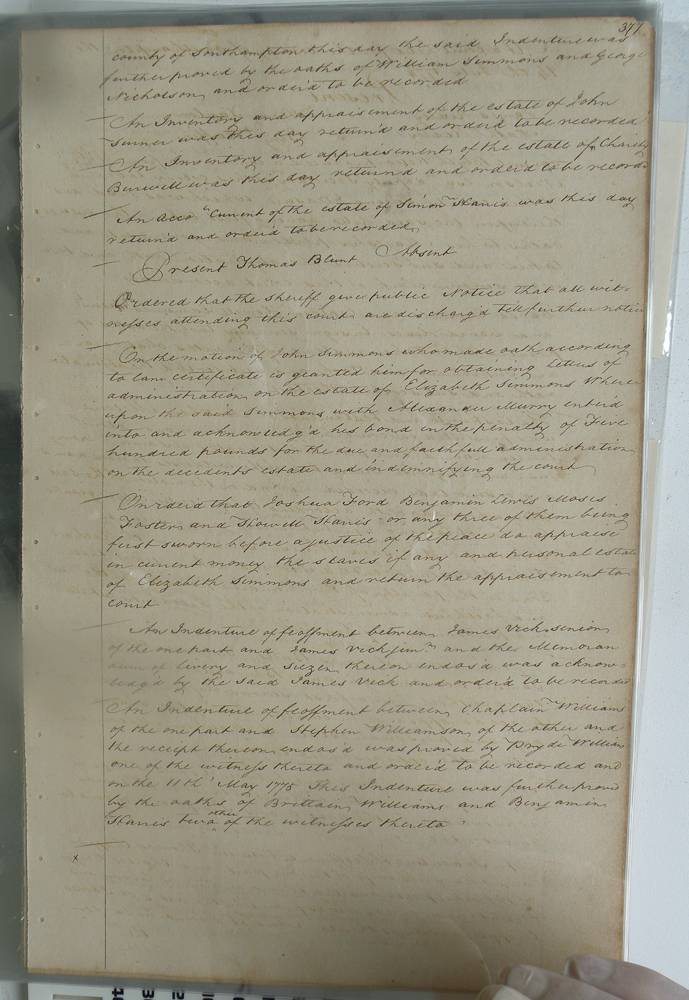 377
county of Southampton this day the said Indenture was
further proved by the oaths of William Simmons and George
Nicholson and order'd to be recorded
An Inventory and appraisement of the estate of John
Turner was this day return'd and order'd to be recorded
An Inventory and appraisement of the estate of Charity
Burwell was this day return'd and order'd to be recorded
An Acco Current of the estate of Simon Harris was this day
return'd and order'd to be recorded
Present Thomas Blunt Absent
Ordered that the Sheriff give public Notice that all wit-
nesses attending this court are discharg'd till further notice
On the motion of John Simmons who made oath according
to law certificate is granted him for obtaining letters of
administration on the estate of Elizabeth Simmons Where
upon the said Simmons with Alexander Murry enter'd
into and acknowledg'd his bond in the penalty of Five
hundred pounds for the due and faithfull administration
on the decedents estate and indemnifying the court
Order'd that Joshua Ford Benjamin Lewis Moses
Foster and Howell Harris or any three of them being
first sworn before a justice of the peace do appraise
in current money the slaves if any and personal estate
of Elizabeth Simmons and return the appraisement to
court
An Indenture of feoffment between James Vick senior
of the one part and James Vick jun and the Memoran
dum of livery and Siezen thereon endos'd was acknow-
ledg'd by the said James Vick and order'd to be recorded
An Indenture of feoffment between Chaplain Williams
of the one part and Stephen Williamson of the other and
the receipt thereon endos'd was proved by William
one of the witness thereto and order'd to be recorded and
on the 11th May 1775 This Indenture was further proved
by the oaths of Brittain Williams and Benjamin
Harris two other of the witnesses thereto
x